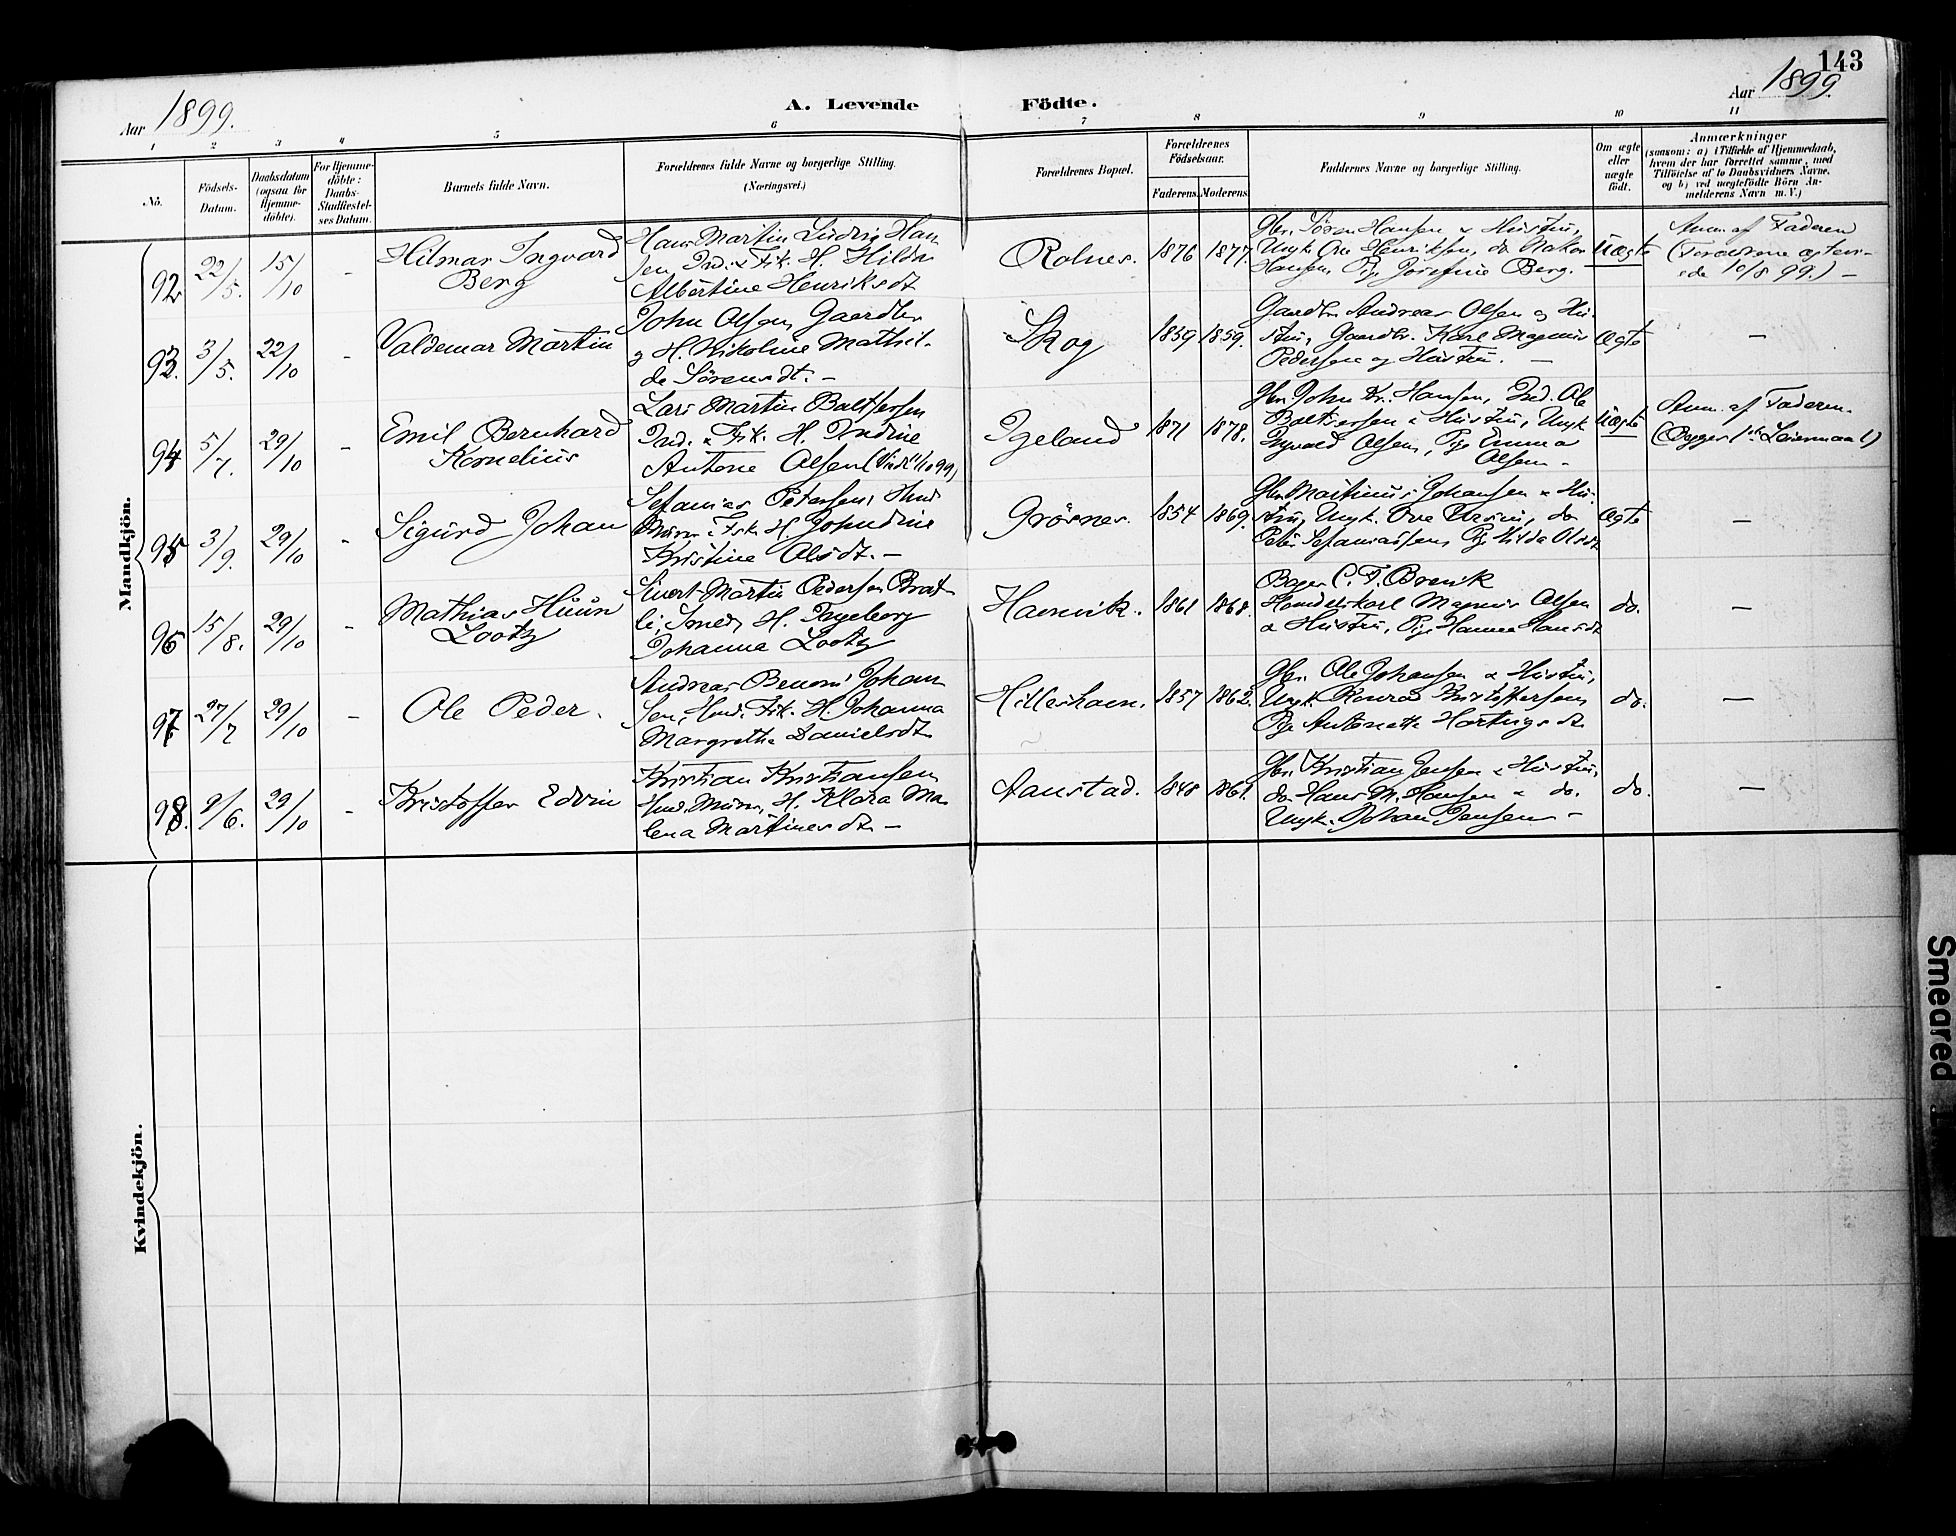 143
Aar 1899.
A. Levende Födte.
Aar 1899.
1 2 3 4 5 6 7 8 9 10 11
No.
Födsels-
Datum.
Daabsdatum
(ogsaa for
Hjemme-
döbte).
For Hjemme-
döbte:
Daabs-
Stadfæstel-
ses Datum.
Barnets fulde Navn.
Forældrenes fulde Navne og borgerlige Stilling.
(Næringsvei.)
Forældrenes Bopæl.
Forældrenes
Födselsaar.
Faderens. Moderens.
Faddernes Navne og borgerlige Stilling.
Om ægte
eller
uægte
födt.
Anmærkninger
(saasom: a) i Tilfælde af Hjemmedaab,
hvem der har forrettet samme, med
Tilföielse af to Daabsvidners Navne,
og b) ved uægtefödte Börn An-
melderens Navn m. V.)
Mandkjön.
92 22/5. 15/10 -
Hilmar Ingvard
Berg
Hans Martin Ludvig Han
sen Ind. & Fisk. H. Hilda
Albertine Henriksdt
Rolnes. 1876 1877.
Gbr. Sören Hansen & Hustru,
Ungk. Ove Henriksen, do Hakon
Hansen, Pige Josefine Berg.
Uægte
Anm. af Faderen
(Forældrene ægtevi-
ede 10/8 99.) -
93. 3/5. 22/10 -
Valdemar Martin
John Olsen, Gaardbr
og H. Nikoline Mathil-
de Sörensdt. -
Skog 1859 1859.
Gaardbr. Andreas Olsen og Hu-
stru, Gaardbr. Karl Magnus
Pedersen og Hustru. -
Ægte -
94 5/7. 29/10 -
Emil Bernhard
Kornelius
Lars Martin Baltsersen
Ind. & Fisk. H. Indrine
Antone Olsen
Igeland 1871 1878.
Gbr. John Kr. Hansen, Ind. Ole
Baltsersen & Hustru, Ungk
Ingvald Olsen, Pige Emma
Olsen -
Uægte
Anm. af Faderen.
(Begges 1ste Leiermaal)
95 3/9. 29/10 -
Sigurd Johan
Sefanias Petersen, Hmd
Murer & Fisk. H. Johndine
Kristine Olsdt. -
Grösnes. 1854 1869.
Gbr. Martinus Johansen & Hu-
stru, Ungk. Ove Ursin, do
Peter Sefaniassen Pige Hilda Olsdt
Ægte -
96 15/8. 29/10 -
Mathias Huun
Lootz
Sivert Martin Pedersen Brat
li, Smed, H. Ingeborg
Johanna Lootz
Havnvik. 1861 1868.
Bager C. F. Brevik
Handelskarl Magnus Olsen
& Hustru, Pige Hanna Hansdt
do. -
97 27/7 29/10 -
Ole Peder.
Andreas Benoni Johan
sen, Hmd. Fisk. H. Johanna
Margrethe Danielsdt
Hilleshavn. 1857 1862.
Gbr. Ole Johansen & Hustru,
Ungk. Konrad Kristoffersen
Pige Antonette Hartvigsdt
do. -
98. 9/6. 29/10 -
Kristoffer Edvin
Kristian Kristiansen
Hmd. Murer, H. Klara Ma
lena Martinesdt -
Aanstad. 1848 1861.
Gbr. Kristian Jensen & Hustru,
do Hans M. Hansen & do.
Ungk. Johan Jensen -
do. -
Kvindekjön.
Smeared